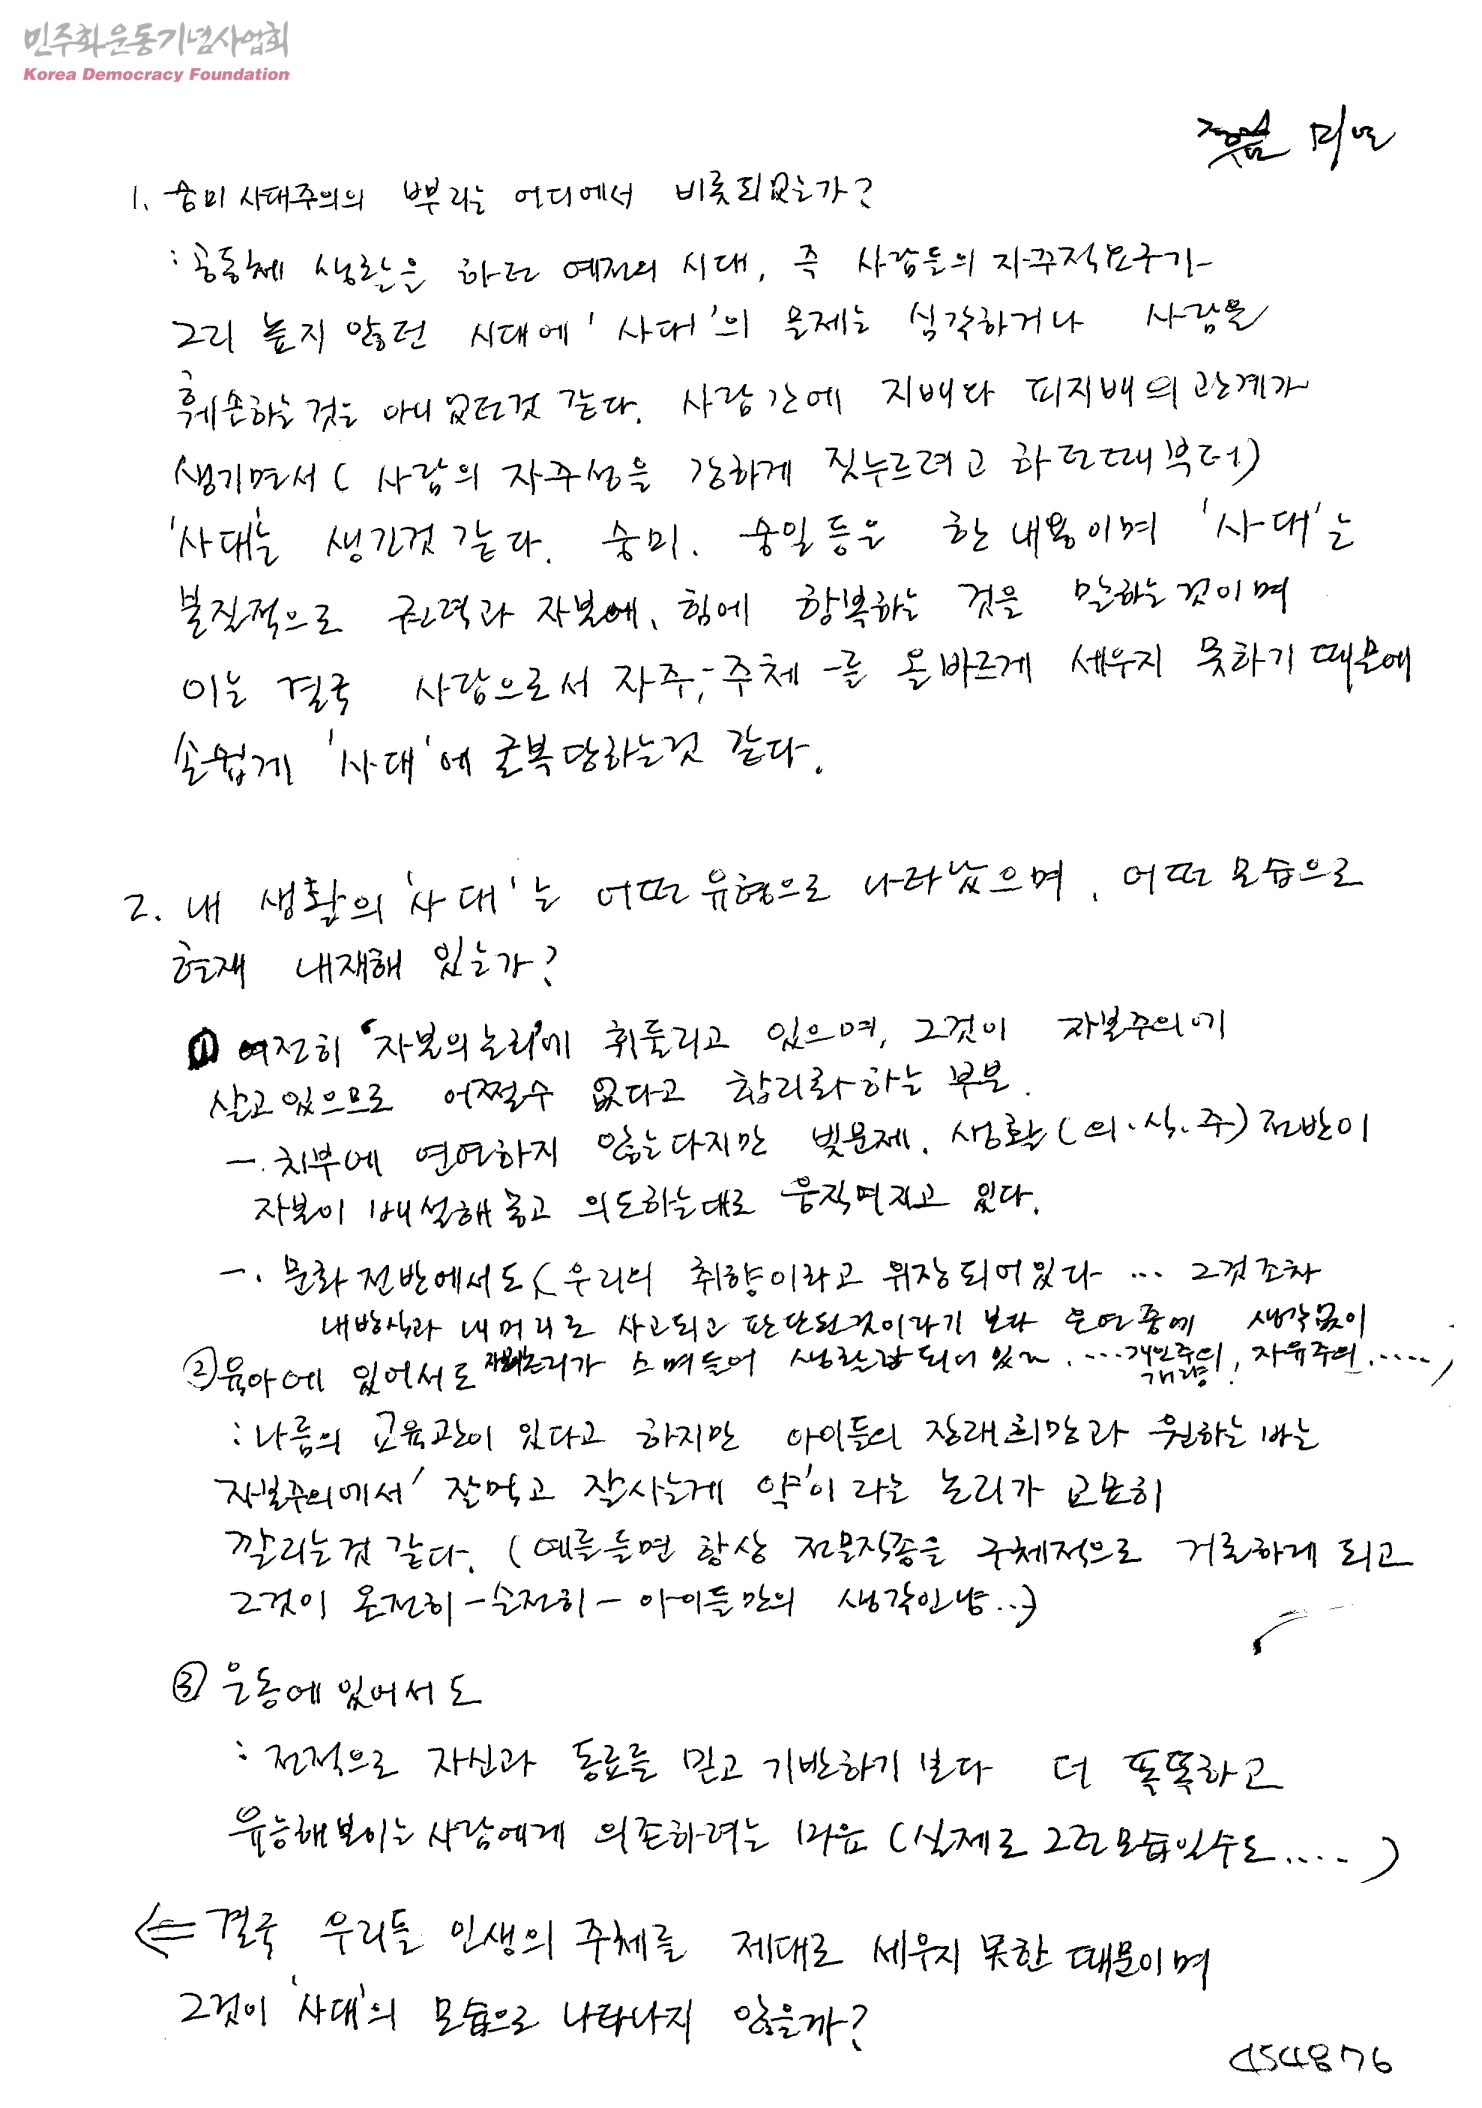 민주화운동기념사업회
Korea Democracy Foundation
미연
1. 숭미사대주의의 뿌리는 어디에서 비롯되었는가?
: 공동체 생활을 하던 예전의 시대, 즉 사람들의 자주적요구가
그리 높지 않던 시대에 '사대'의 문제는 심각하거나 사람을
훼손하는것은 아니었던것 같다. 사람간에 지배와 피지배의 관계가
생기면서 (사람의 자주성을 강하게 짓누르려고 하던때부터)
'사대'는 생긴것 같다. 숭미. 숭일등은 한 내용이며 '사대'는
본질적으로 권력과 자본에, 힘에 항복하는 것을 말하는것이며
이는 결국 사람으로서 자주,-주체-를 올바르게 세우지 못하기 때문에
손쉽게 '사대'에 굴복당하는것 같다.
2. 내 생활의 '사대'는 어떤 유형으로 나타났으며, 어떤 모습으로
현재 내재해 있는가?
① 여전히 '자본의 논리'에 휘둘리고 있으며, 그것이 자본주의에
살고있으므로 어쩔수 없다고 합리화하는 부분.
-. 치부에 연연하지 않는다지만 빚문제, 생활(의·식·주)전반이
자본이 배설해놓고 의도하는대로 움직여지고 있다.
-. 문화전반에서도 (우리의 취향이라고 위장되어있다 ... 그것조차
내방식과 내머리로 사고되고 판단된것이라기 보다 은연중에 생각없이
② 육아에 있어서도 자본논리가 스며들어 생활화되어 있는. ....개인주의, 자유주의.....,
개량!
: 나름의 교육관이 있다고 하지만 아이들의 장래희망과 원하는바는
자본주의에서 '잘먹고 잘사는게 약'이라는 논리가 교묘히
깔리는것 같다. (예를들면 항상 전문직종을 구체적으로 거론하게 되고
그것이 온전히 -순전히- 아이들만의 생각인냥..)
③ 운동에있어서도
: 전적으로 자신과 동료를 믿고 기반하기보다 더 똑똑하고
유능해보이는사람에게 의존하려는 마음 (실제로 그런모습일수도.....)
<= 결국 우리들 인생의 주체를 제대로 세우지 못한 때문이며
그것이 '사대'의 모습으로 나타나지 않을까?
454876